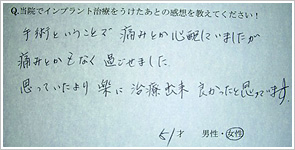 Q.当院でインプラント治療をうけたあとの感想を教えてください!
手術ということで 痛みとか心配していましたが
痛みとかもなく 過ごせました。
思っていたより 楽に 治療出来 良かったと思っています。
51才 男性・女性